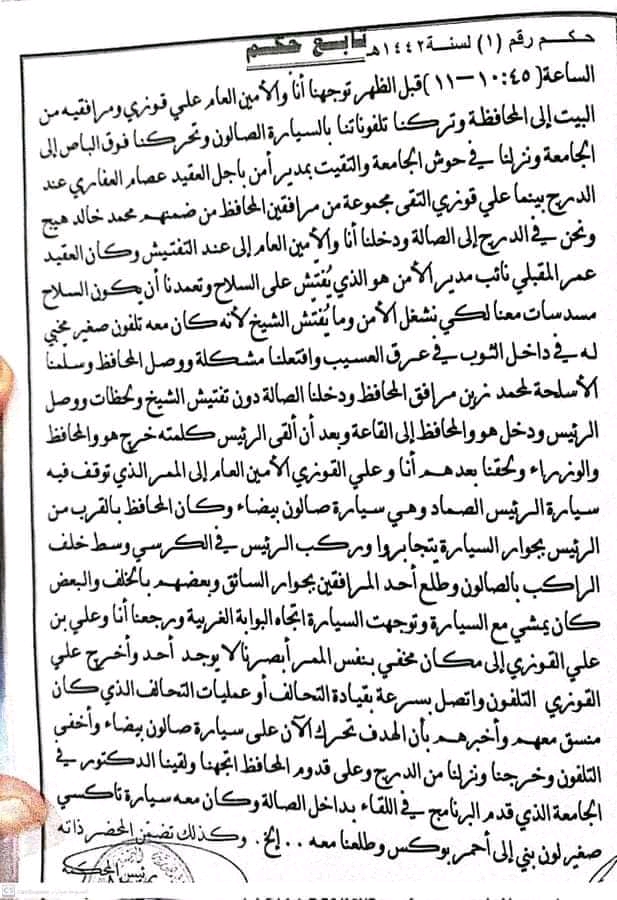 حكم رقم (١) لسنة ١٤٤٢هـ تابع حكم
الساعة (١٠:٤٥ - ١١) قبل الظهر توجهنا أنا والأمين العام علي قوزري ومرافقيه من
البيت إلى المحافظة وتركنا تلفوناتنا بالسيارة الصالون وتحركنا فوق الباص إلى
الجامعة ونزلنا في حوش الجامعة والتقيت بمدير أمن باجل العقيد عصام الغفاري عند
الدرج بينما علي قوزري التقى مجموعة من مرافقين المحافظ من ضمنهم محمد خالد هيج
ونحن في الدرج إلى الصالة ودخلنا أنا والأمين العام إلى عند التفتيش وكان العقيد
عمر المقبلي نائب مدير الأمن هو الذي يُفتِش على السلاح وتعمدنا أن يكون السلاح
مسدسات معنا لكي نشغل الأمن وما يُفتِش الشيخ لأنه كان معه تلفون صغير مخبي
له في داخل الثوب في عرق العسيب وافتعلنا مشكلة ووصل المحافظ وسلمنا
الأسلحة لمحمد نرين مرافق المحافظ ودخلنا الصالة دون تفتيش الشيخ ولحظات ووصل
الرئيس ودخل هو والمحافظ إلى القاعة وبعد أن ألقى الرئيس كلمته خرج هو والمحافظ
والوزراء ولحقنا بعدهم أنا وعلي القوزري الأمين العام إلى الممر الذي توقف فيه
سيارة الرئيس الصماد وهي سيارة صالون بيضاء وكان المحافظ بالقرب من
الرئيس بجوار السيارة يتجابروا وركب الرئيس في الكرسي وسط خلف
الراكب بالصالون وطلع أحد المرافقين بجوار السائق وبعضهم بالخلف والبعض
كان يمشي مع السيارة وتوجهت السيارة اتجاه البوابة الغربية ورجعنا أنا وعلي بن
علي القوزري إلى مكان مخفي بنفس الممر أبصرنا لا يوجد أحد وأخرج علي
القوزري التلفون واتصل بسرعة بقيادة التحالف أو عمليات التحالف الذي كان
منسق معهم وأخبرهم بأن الهدف تحرك الآن على سيارة صالون بيضاء وأخفى
التلفون وخرجنا ونزلنا من الدرج وعلى قدوم المحافظ اتجهنا ولقينا الدكتور في
الجامعة الذي قدم البرنامج في اللقاء بداخل الصالة وكان معه سيارة تاكسي
صغير لون بني إلى أحمر بوكس وطلعنا معه .. إلخ. وكذلك تضمن المحضر ذاته
رئيس المحكمة